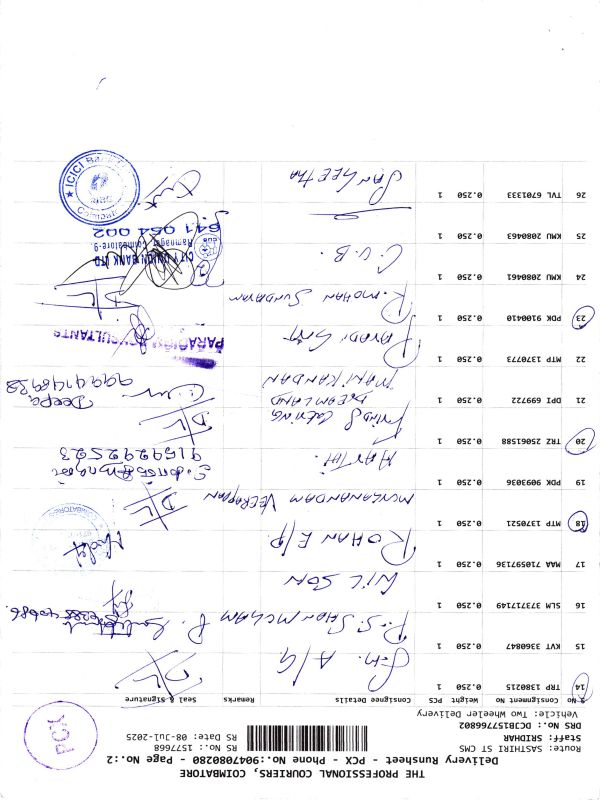 THE PROFESSIONAL COURIERS, COIMBATORE
Delivery Runsheet - PCX - Phone No.:9047080280 - Page No.:2
Route: SASTHIRI ST CMS
Staff: SRIDHAR
DRS No.: DCJB157766802
Vehicle: Two Wheeler Delivery
RS No.: 1577668
RS Date: 08-Jul-2025
PCX
S.No Consignment No Weight PCS Consignee Details Remarks Seal & Signature
14 TRP 1380215 0.250 1 S.M. A/G D/L
15 KVT 3360847 0.250 1 P.S. SHANMUGAM P.
16 SLM 373717149 0.250 1 WILSON
17 MAA 710597136 0.250 1 ROHAN E/P.
18 MTP 1370521 0.250 1 MUYLANANDAM VEERAPPAN D/L
19 PDK 9093036 0.250 1 HAYTH. 9159292523
20 TRZ 25061588 0.250 1 Catering D/L
21 DPI 622699 0.250 1 DREAMLAND MANIKANDAN Deepa 9994148928
22 MTP 1370773 0.250 1
PARAGON CONSULTANTS
23 PDK 9100410 0.250 1 R. MOHAN SUNDARAM D/L
24 KMU 2080461 0.250 1 C.U.B.
CITY UNION BANK LTD
Ramnagar Coimbatore-9
641 954 002
25 KMU 2080463 0.250 1
26 TVL 6701333 0.250 1 SANGEETHA
ICICI Bank